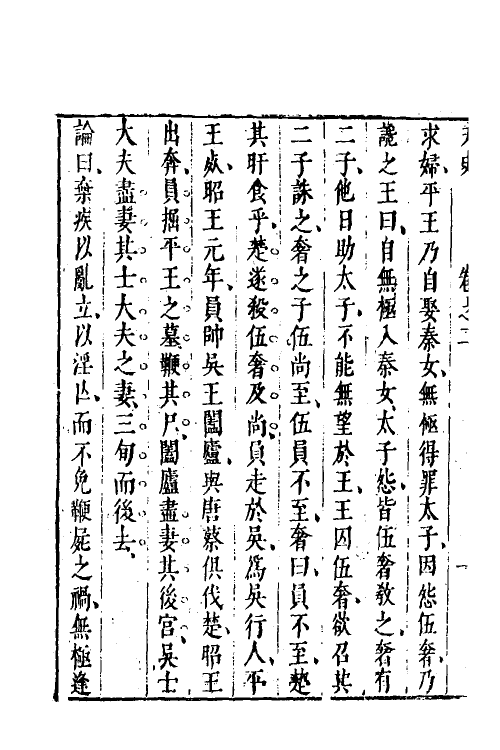 卷之二
求婦、平王乃自娶秦女、無極得罪太子、因怨伍奢、乃
讒之王曰、自無極入秦女、太子怨、皆伍奢教之、奢有
二子、他日助太子、不能無望於王、王囚伍奢、欲召其
二子誅之、奢之子伍尚至、伍員不至、奢曰、員不至、楚
其旰食乎、楚遂殺伍奢及尚、員走於吳、爲吳行人、平
王死、昭王元年、員帥吳王闔廬、與唐蔡俱伐楚、昭王
出奔、員掘平王之墓、鞭其尸、闔廬盡妻其後宮、吳士
大夫盡妻其士大夫之妻、三旬而後去、
論曰、棄疾以亂立、以淫亾、而不免鞭屍之禍、無極逢